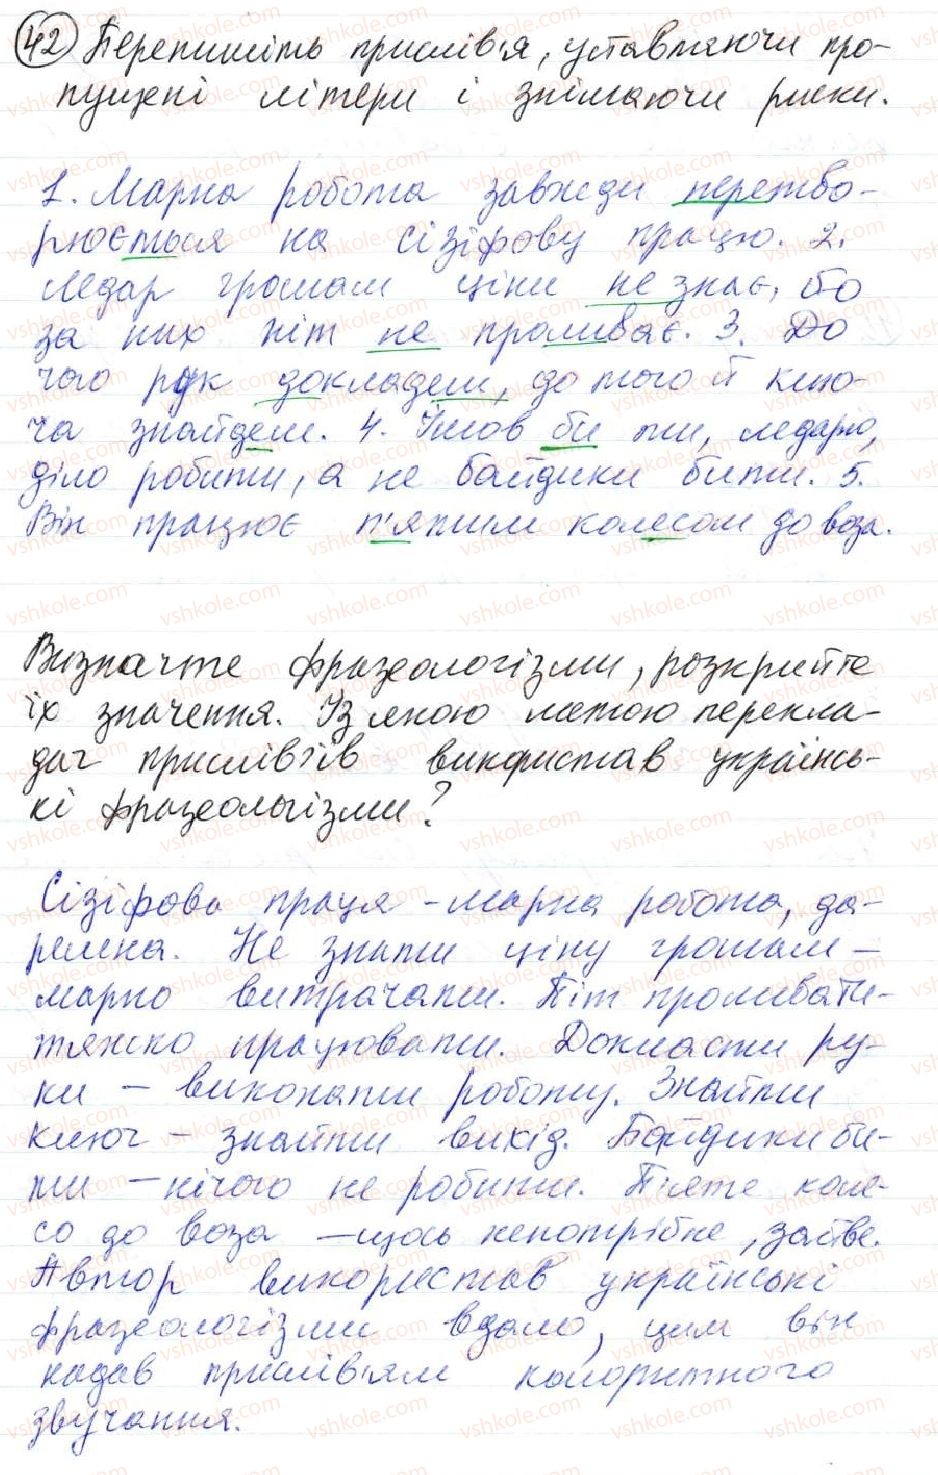 42 Перепишіть прислів'я, уставляючи про-
пущені літери і знімаючи риски.
1. Марна робота завжди перетво-
рюється на сізіфову працю. 2.
Ледар грошам ціни не знає, бо
за них піт не проливає. 3. До
чого рук докладем, до того й клю-
ча знайдем. 4. Ішов би ти, ледарю,
діло робити, а не байдики бити. 5.
Він працює п'ятим колесом до воза.
Визначте фразеологізми, розкрийте
їх значення. Із якою метою перекла-
дач прислів'їв використав українсь-
кі фразеологізми?
Сізіфова праця - марна робота, да-
ремна. Не знати ціну грошам -
марно витрачати. Піт проливати -
тяжко працювати. Докласти ру-
ки - виконати роботу. Знайти
ключ - знайти вихід. Байдики би-
ти - нічого не робити. П'яте коле-
со до воза - щось непотрібне, зайве.
Автор використав українські
фразеологізми вдало, цим він
надав прислів'ям колоритного
звучання.